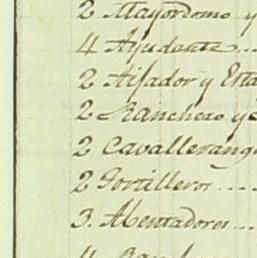 2 Mayordomo y
4 Ayudante...
2 Atisador y Esta
2 Ranchero y C
2 Cavallerang
2 Tortilleros....
3. Mentadores...
4